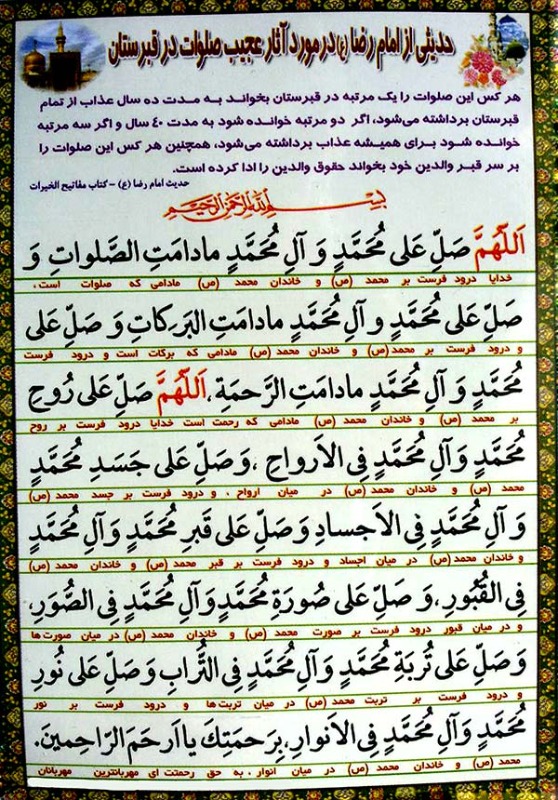 حدیثی از امام رضا (ع) در مورد آثار عجیب صلوات در قبرستان
هر کس این صلوات را یک مرتبه در قبرستان بخواند به مدت ده سال عذاب از تمام
قبرستان برداشته می‌شود، اگر دو مرتبه خوانده شود به مدت ۴۰ سال و اگر سه مرتبه
خوانده شود برای همیشه عذاب برداشته می‌شود، همچنین هر کس این صلوات را
بر سر قبر والدین خود بخواند حقوق والدین را ادا کرده است.
حدیث امام رضا (ع) - کتاب مفاتیح الخیرات
بسم الله الرحمن الرحیم
اَللّهُمَّ صَلِّ عَلی مُحَمَّدٍ وَ آلِ مُحَمَّدٍ مادامَتِ الصَّلَواتِ وَ
خدایا درود فرست بر محمد (ص) و خاندان محمد (ص) مادامی که صلوات است،
صَلِّ عَلی مُحَمَّدٍ و آلِ مُحَمَّدٍ مادامَتِ البَرَکاتِ وَ صَلِّ عَلی
و درود فرست بر محمد (ص) و خاندان محمد (ص) مادامی که برکات است و درود فرست
مُحَمَّدٍ وَ آلِ مُحَمَّدٍ مادامَتِ الرَّحمَةِ، اَللّهُمَّ صَلِّ عَلی رُوحِ
بر محمد (ص) و خاندان محمد (ص) مادامی که رحمت است خدایا درود فرست بر روح
مُحَمَّدٍ وَآلِ مُحَمَّدٍ فِی الاَرواحِ ،وَ صَلِّ عَلی جَسَدِ مُحَمَّدٍ
محمد (ص) و خاندان محمد (ص) در میان ارواح ، و درود فرست بر جسد محمد (ص)
وَ آلِ مُحَمَّدٍ فِی الاَجسادِ وَ صَلِّ عَلی قَبرِ مُحَمَّدٍ وَ آلِ مُحَمَّدٍ
و خاندان محمد (ص) در میان اجساد و درود فرست بر قبر محمد (ص) و خاندان محمد (ص)
فِی القُبُورِ ،وَ صَلِّ عَلی صُورَةِ مُحَمَّدٍ وَآلِ مُحَمَّدٍ فِی الصُّوَرِ،
و در میان قبور درود فرست بر صورت محمد (ص) و خاندان محمد (ص) در میان صورت ها
وَصَلِّ عَلی تُربَةِ مُحَمَّدٍ وَآلِ مُحَمَّدٍ فِی التُّرابِ وَ صَلِّ عَلی نُورِ
و درود فرست بر تربت محمد (ص) در میان تربت‌ها و درود فرست بر نور
مُحَمَّدٍ وَ آلِ مُحَمَّدٍ فِی الاَنوارِ،بِرَحمَتِكَ یا اَرحَمَ الرّاحِمینَ.
محمد (ص) و خاندان محمد (ص) در میان انوار ، به حق رحمتت ای مهربانترین مهربانان